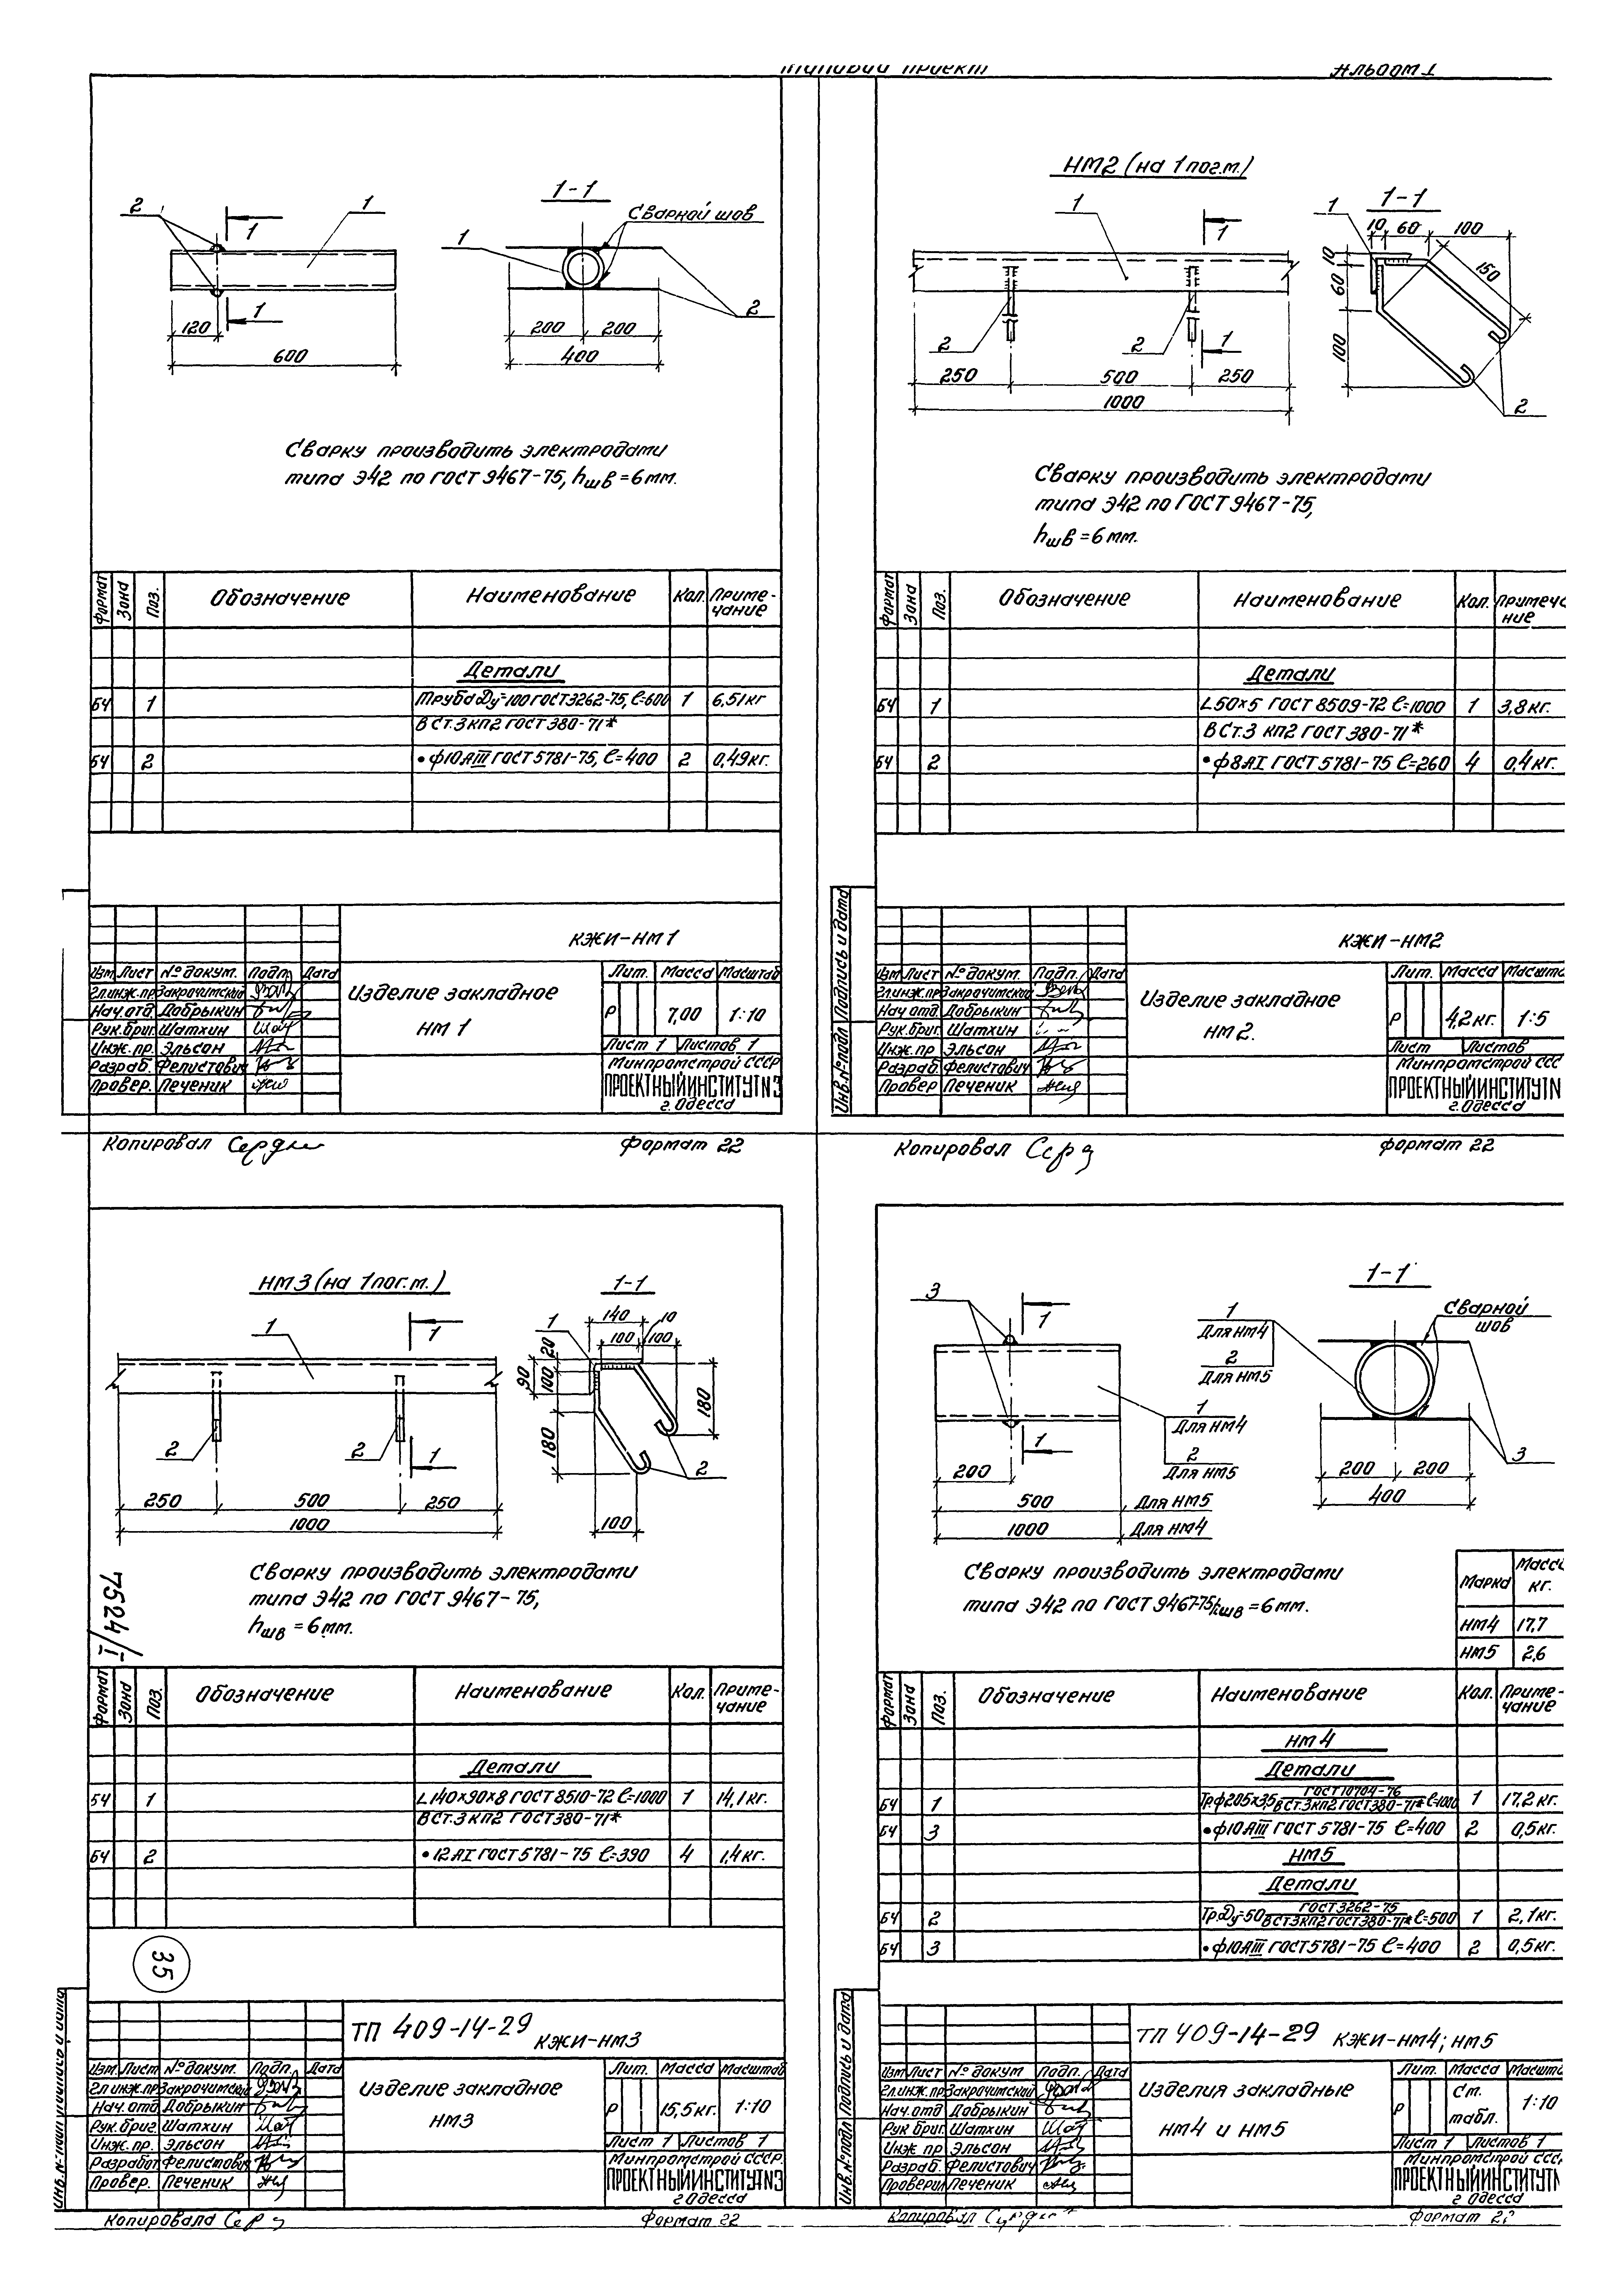 Типовой проект
Альбом 1
2
1
1
1
120
600
1-1
Сварной шов
1
2
200
200
400
Сварку производить электродами
типа Э42 по ГОСТ 9467-75, hшв = 6 мм.
Формат
Зона
Поз.
Обозначение
Наименование
Кол.
Приме-
чание
Детали
БЧ 1 Труба Ду=100 ГОСТ 3262-75, ℓ=600 1 6,51 кг
В Ст.3 кп2 ГОСТ 380-71*
БЧ 2 • ф10АIII ГОСТ 5781-75, ℓ=400 2 0,49 кг.
КЖИ-НМ1
Изм Лист № докум. Подп. Дата
Гл.инж.пр Закрочимский
Нач.отд. Добрыкин
Рук.бриг. Шатхин
Инж. пр. Эльсон
Разраб. Фелистович
Провер. Печеник
Изделие закладное
НМ 1
Лит. Масса Масштаб
Р 7,00 1:10
Лист 1 Листов 1
Минпромстрой СССР
ПРОЕКТНЫЙ ИНСТИТУТ N3
г. Одесса
Копировал
Формат 22
НМ2 (на 1 пог.м.)
1
1
2
2
1
250
500
250
1000
1-1
1
10
60
100
10
60
100
150
2
Сварку производить электродами
типа Э42 по ГОСТ 9467-75,
hшв = 6 мм.
Формат
Зона
Поз.
Обозначение
Наименование
Кол.
Примеча
ние
Детали
БЧ 1 L50×5 ГОСТ 8509-72 ℓ=1000 1 3,8 кг.
В Ст.3 кп2 ГОСТ 380-71*
БЧ 2 • ф8АI ГОСТ 5781-75 ℓ=260 4 0,4 кг.
Инв.№ подл Подпись и дата
КЖИ-НМ2
Изм Лист № докум. Подп. Дата
Гл.инж.пр Закрочимский
Нач.отд. Добрыкин
Рук.бриг. Шатхин
Инж. пр Эльсон
Разраб. Фелистович
Провер Печеник
Изделие закладное
НМ 2.
Лит. Масса Масшта
Р 4,2 кг. 1:5
Лист Листов
Минпромстрой ССС
ПРОЕКТНЫЙ ИНСТИТУТ N
г. Одесса
Копировал
Формат 22
НМ3 (на 1 пог. м.)
1
1
2
2
1
250
500
250
1000
1-1
1
140
10
100
100
20
90
100
180
180
2
100
Сварку производить электродами
типа Э42 по ГОСТ 9467-75,
hшв = 6 мм.
7524/I
Формат
Зона
Поз.
Обозначение
Наименование
Кол.
Приме-
чание
Детали
БЧ 1 L140×90×8 ГОСТ 8510-72 ℓ=1000 1 14,1 кг.
В Ст.3 кп2 ГОСТ 380-71*
БЧ 2 • 12АI ГОСТ 5781-75 ℓ=390 4 1,4 кг.
35
ТП 409-14-29 КЖИ-НМ3
Изм Лист № докум. Подп. Дата
Гл инж.пр Закрочимский
Нач. отд Добрыкин
Рук. бриг. Шатхин
Инж. пр. Эльсон
Разработ Фелистович
Провер. Печеник
Изделие закладное
НМ3
Лит. Масса Масштаб
Р 15,5 кг. 1:10
Лист 1 Листов 1
Минпромстрой СССР.
ПРОЕКТНЫЙ ИНСТИТУТ N3
г Одесса
Копировала
Формат 22
3
1
1
Для НМ4
2
Для НМ5
1
200
500 Для НМ5
1000 Для НМ4
1-1
1
Для НМ4
2
Для НМ5
Сварной
шов
3
200
200
400
Сварку производить электродами
типа Э42 по ГОСТ 9467-75, hшв = 6 мм.
Марка
Масса
кг.
НМ4 17,7
НМ5 2,6
Формат
Зона
Поз.
Обозначение
Наименование
Кол.
Приме-
чание
НМ4
Детали
БЧ 1 Тр.ф205×3,5 ГОСТ 10704-76 / В Ст.3кп2 ГОСТ 380-71* ℓ=1000 1 17,2 кг.
БЧ 3 • ф10АIII ГОСТ 5781-75 ℓ=400 2 0,5 кг.
НМ5
Детали
БЧ 2 Тр.Ду=50 ГОСТ 3262-75 / В Ст3кп2 ГОСТ 380-71* ℓ=500 1 2,1 кг.
БЧ 3 • ф10АIII ГОСТ 5781-75 ℓ=400 2 0,5 кг.
Инв.№ подл Подпись и дата
ТП 409-14-29 КЖИ-НМ4; НМ5
Изм Лист № докум Подп. Дата
Гл.инж.пр Закрочимский
Нач. отд Добрыкин
Рук бриг. Шатхин
Инж пр Эльсон
Разраб. Фелистович
Проверил Печеник
Изделия закладные
НМ4 и НМ5
Лит. Масса Масшта
Р См. табл. 1:10
Лист 1 Листов 1
Минпромстрой ССС
ПРОЕКТНЫЙ ИНСТИТУТ
г Одесса
Копировал
Формат 22